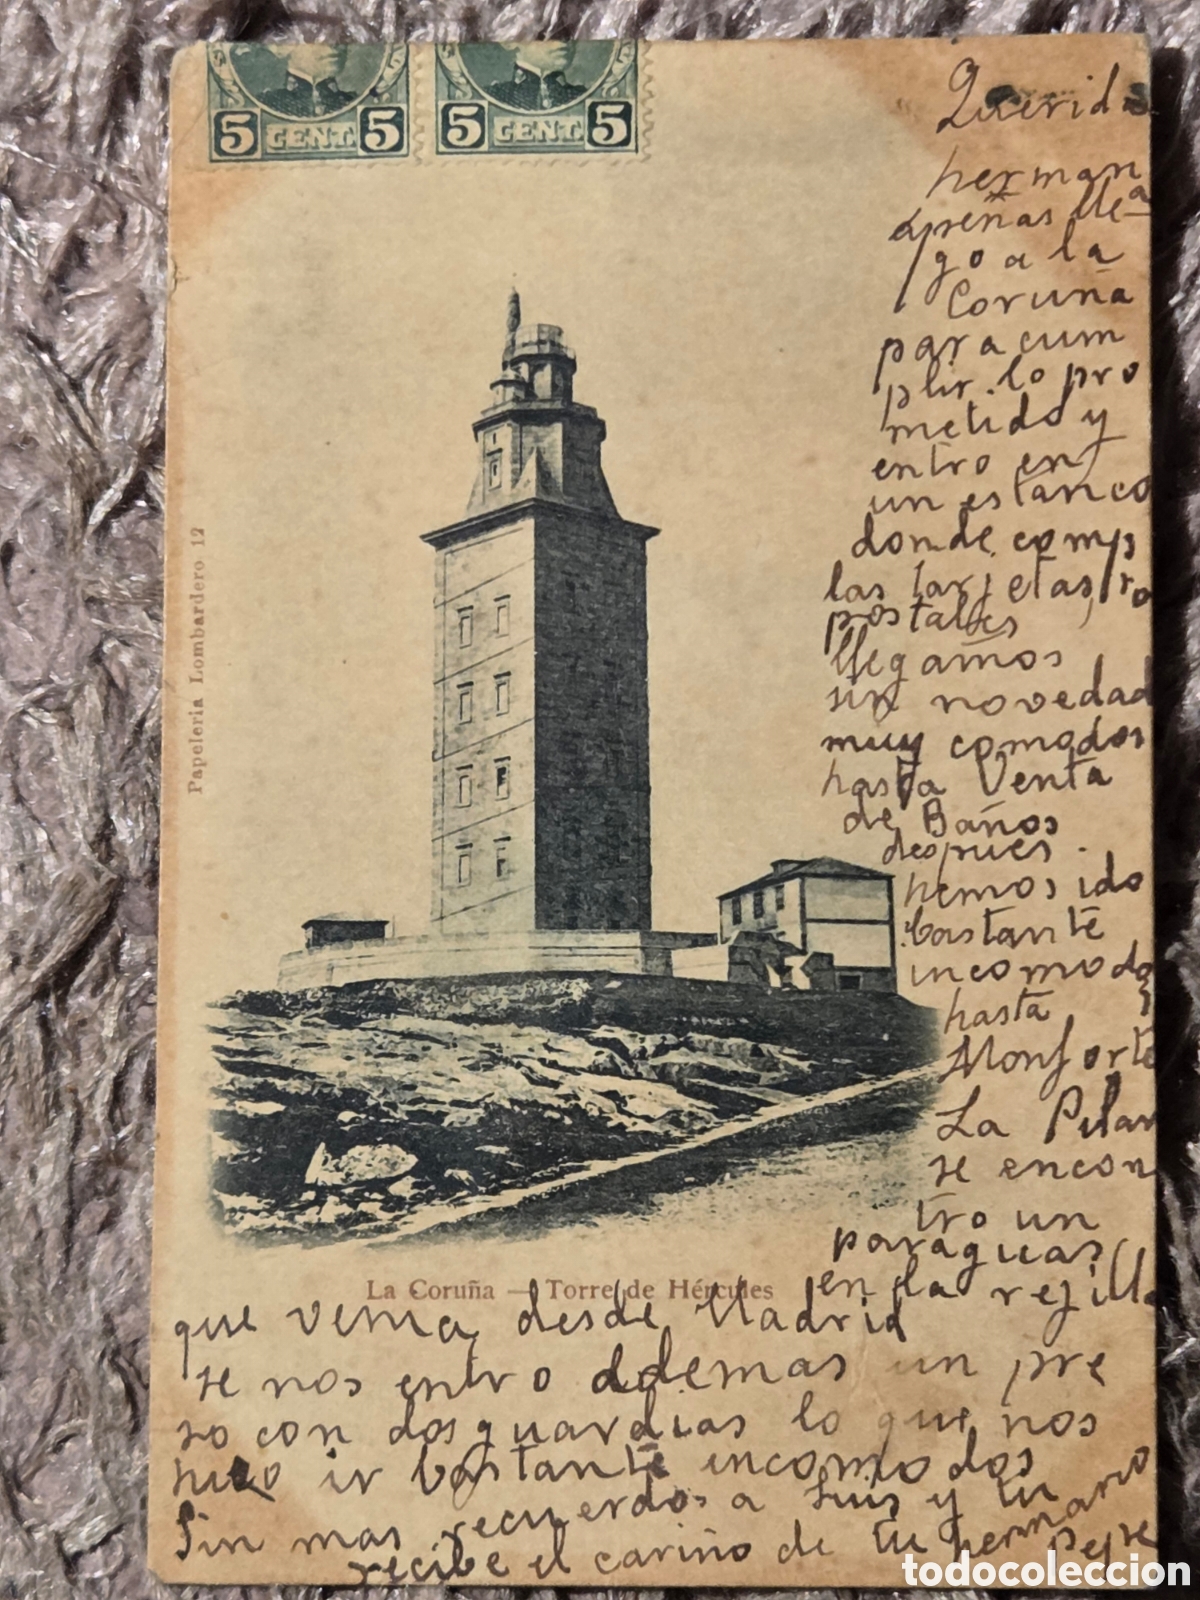 5 CENT. 5
5 CENT. 5
Querida
hermana
apeñas lle
go a la
Coruña
para cum
plir lo pro
metido y
entro en
un estanco
donde comp
las tarjetas, ro
postales
llegamos
sin novedad
muy comodos
hasta Venta
de Baños
depues
hemos ido
bastante
incomodos
hasta
Monforte
La Pilar
se encon
tro un
paraguas
en la rejilla
que venia desde Madrid
se nos entro ademas un pre
so con dos guardias lo que nos
hizo ir bastante incomodos
Sin mas recuerdos a Luis y tu
recibe el cariño de tu hermano
Pepe
Papeleria Lombardero 12
La Coruña — Torre de Hércules
todocoleccion